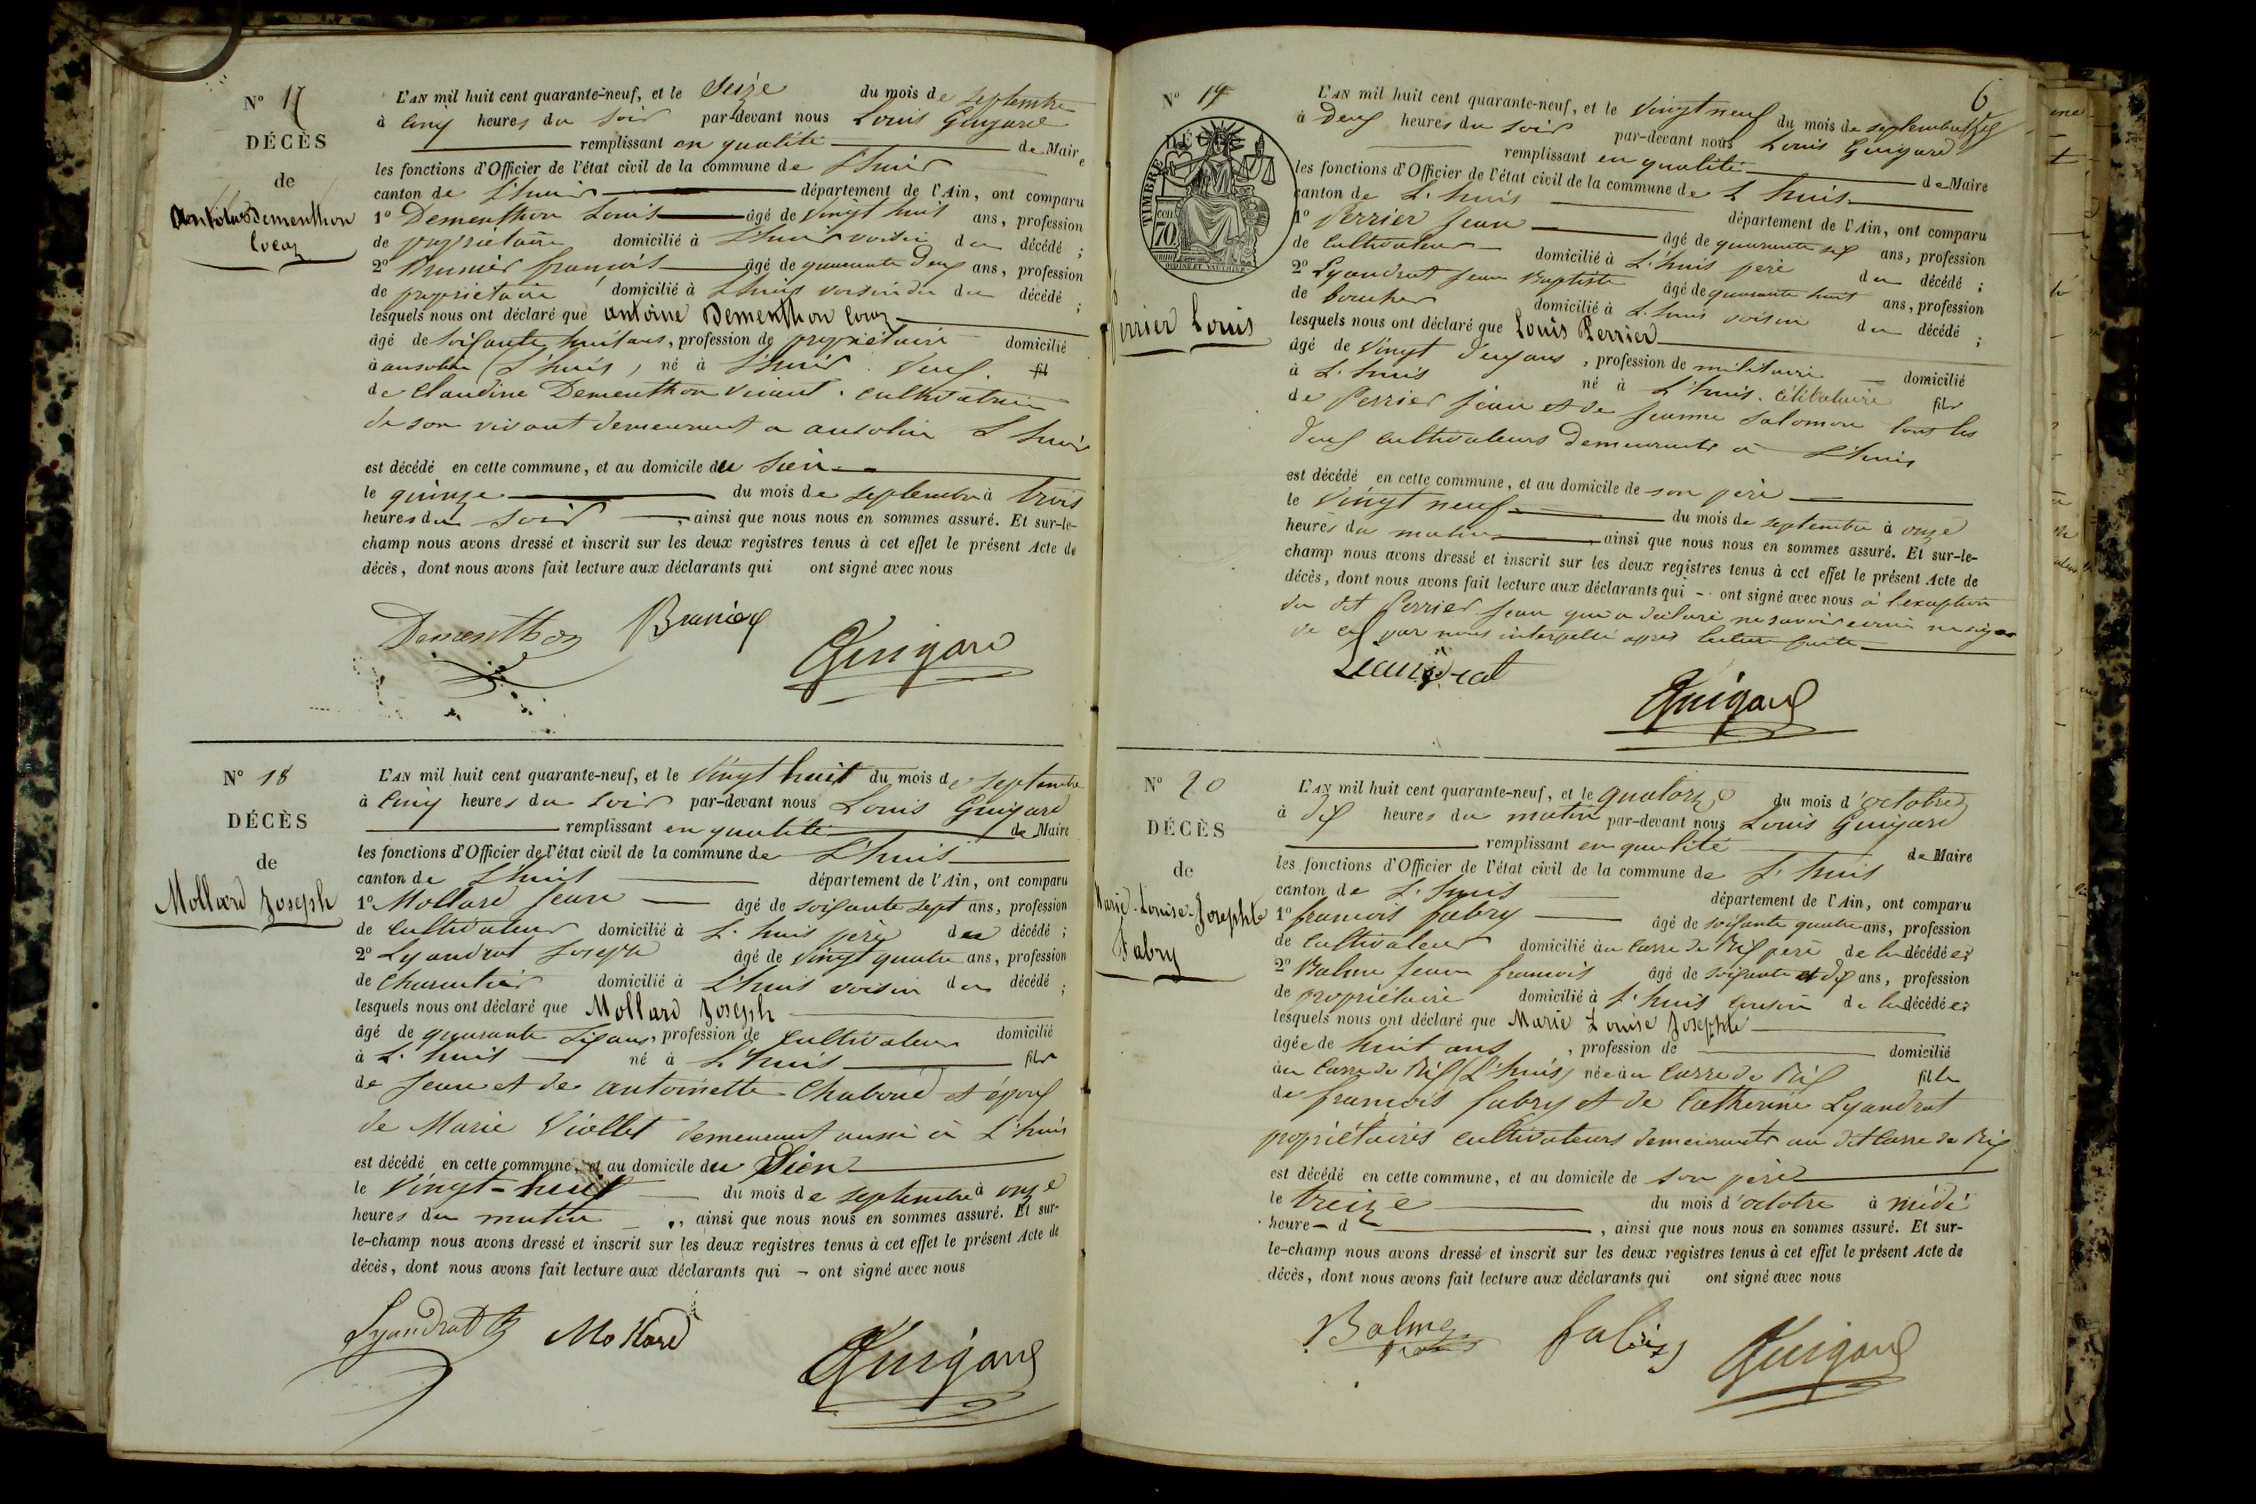 N° 17
DÉCÈS
de
Antoine Dementhon
Cocaz
L'AN mil huit cent quarante-neuf, et le Seize du mois de septembre
à cinq heures du soir par-devant nous Louis Guigard
remplissant en qualité de Maire
les fonctions d'Officier de l'état civil de la commune de L'huis
canton de L'huis département de l'Ain, ont comparu
1° Dementhon Louis âgé de vingt huit ans, profession
de propriétaire domicilié à L'huis voisin du décédé ;
2° Brunier françois âgé de quarante deux ans, profession
de propriétaire domicilié à L'huis voisin du décédé ;
lesquels nous ont déclaré que antoine Dementhon Cocaz
âgé de soixante huit ans, profession de propriétaire domicilié
à ansolin (L'huis) né à L'huis. Veuf fil
de Claudine Dementhon Vivant. cultivatrice
de son vivant demeurant a ansolin L'huis
est décédé en cette commune, et au domicile du sien
le quinze du mois de septembre à trois
heures du soir, ainsi que nous nous en sommes assuré. Et sur-le-
champ nous avons dressé et inscrit sur les deux registres tenus à cet effet le présent Acte de
décès, dont nous avons fait lecture aux déclarants qui ont signé avec nous
Dementhon Brunier
Guigard
N° 18
DÉCÈS
de
Mollard Joseph
L'AN mil huit cent quarante-neuf, et le Vingt huit du mois de septembre
à cinq heures du soir par-devant nous Louis Guigard
remplissant en qualité de Maire
les fonctions d'Officier de l'état civil de la commune de L'huis
canton de L'huis département de l'Ain, ont comparu
1° Mollard Jean âgé de soixante sept ans, profession
de cultivateur domicilié à L'huis père du décédé ;
2° Lyandrat Joseph âgé de vingt quatre ans, profession
de Charpentier domicilié à L'huis voisin du décédé ;
lesquels nous ont déclaré que Mollard Joseph
âgé de quarante six ans, profession de cultivateur domicilié
à L'huis né à L'huis fils
de Jean et de antoinette Chaboud et époux
de Marie Viollet demeurant aussi à L'huis
est décédé en cette commune, et au domicile du Sien
le Vingt-huit du mois de septembre à onze
heures du matin, ainsi que nous nous en sommes assuré. Et sur-
le-champ nous avons dressé et inscrit sur les deux registres tenus à cet effet le présent Acte de
décès, dont nous avons fait lecture aux déclarants qui ont signé avec nous
Lyandrat Mollard
Guigard
6
N° 19
DÉ
TIMBRE
70
Perrier Louis
L'AN mil huit cent quarante-neuf, et le Vingt neuf du mois de septembre
à Deux heures du soir par-devant nous Louis Guigard
remplissant en qualité de Maire
les fonctions d'Officier de l'état civil de la commune de L'huis
canton de L'huis département de l'Ain, ont comparu
1° Perrier Jean âgé de quarante six ans, profession
de Cultivateur domicilié à L'huis père du décédé ;
2° Lyandrat Jean Baptiste âgé de quarante huit ans, profession
de boucher domicilié à L'huis voisin du décédé ;
lesquels nous ont déclaré que Louis Perrier
âgé de Vingt deux ans, profession de militaire domicilié
à L'huis né à L'huis. célibataire fils
de Perrier Jean et de Jeanne Salomon tous les
deux cultivateurs demeurants à L'huis
est décédé en cette commune, et au domicile de son père
le Vingt neuf du mois de septembre à onze
heures du matin, ainsi que nous nous en sommes assuré. Et sur-le-
champ nous avons dressé et inscrit sur les deux registres tenus à cet effet le présent Acte de
décès, dont nous avons fait lecture aux déclarants qui ont signé avec nous à l'exception
du dit Perrier Jean qui a déclaré ne savoir écrire ne signer
de ce par nous interpellé après lecture faite
Leandrat
Guigard
N° 20
DÉCÈS
de
Marie-Louise-Josephte
Fabry
L'AN mil huit cent quarante-neuf, et le quatorze du mois d'octobre
à dix heures du matin par-devant nous Louis Guigard
remplissant en qualité de Maire
les fonctions d'Officier de l'état civil de la commune de L'huis
canton de L'huis département de l'Ain, ont comparu
1° françois fabry âgé de soixante quatre ans, profession
de Cultivateur domicilié au Carre de Rix père de la décédée ;
2° Balme Jean françois âgé de soixante et dix ans, profession
de propriétaire domicilié à L'huis cousin de la décédée ;
lesquels nous ont déclaré que Marie Louise Josephte
âgée de huit ans, profession de domicilié
au Carre de Rix (L'huis) née au Carre de Rix fille
de françois fabry et de Catherine Lyandrat
propriétaires cultivateurs demeurants au dit Carre de Rix
est décédé en cette commune, et au domicile de son père
le treize du mois d'octobre à midi
heure d, ainsi que nous nous en sommes assuré. Et sur-
le-champ nous avons dressé et inscrit sur les deux registres tenus à cet effet le présent Acte de
décès, dont nous avons fait lecture aux déclarants qui ont signé avec nous
Balme fabry Guigard